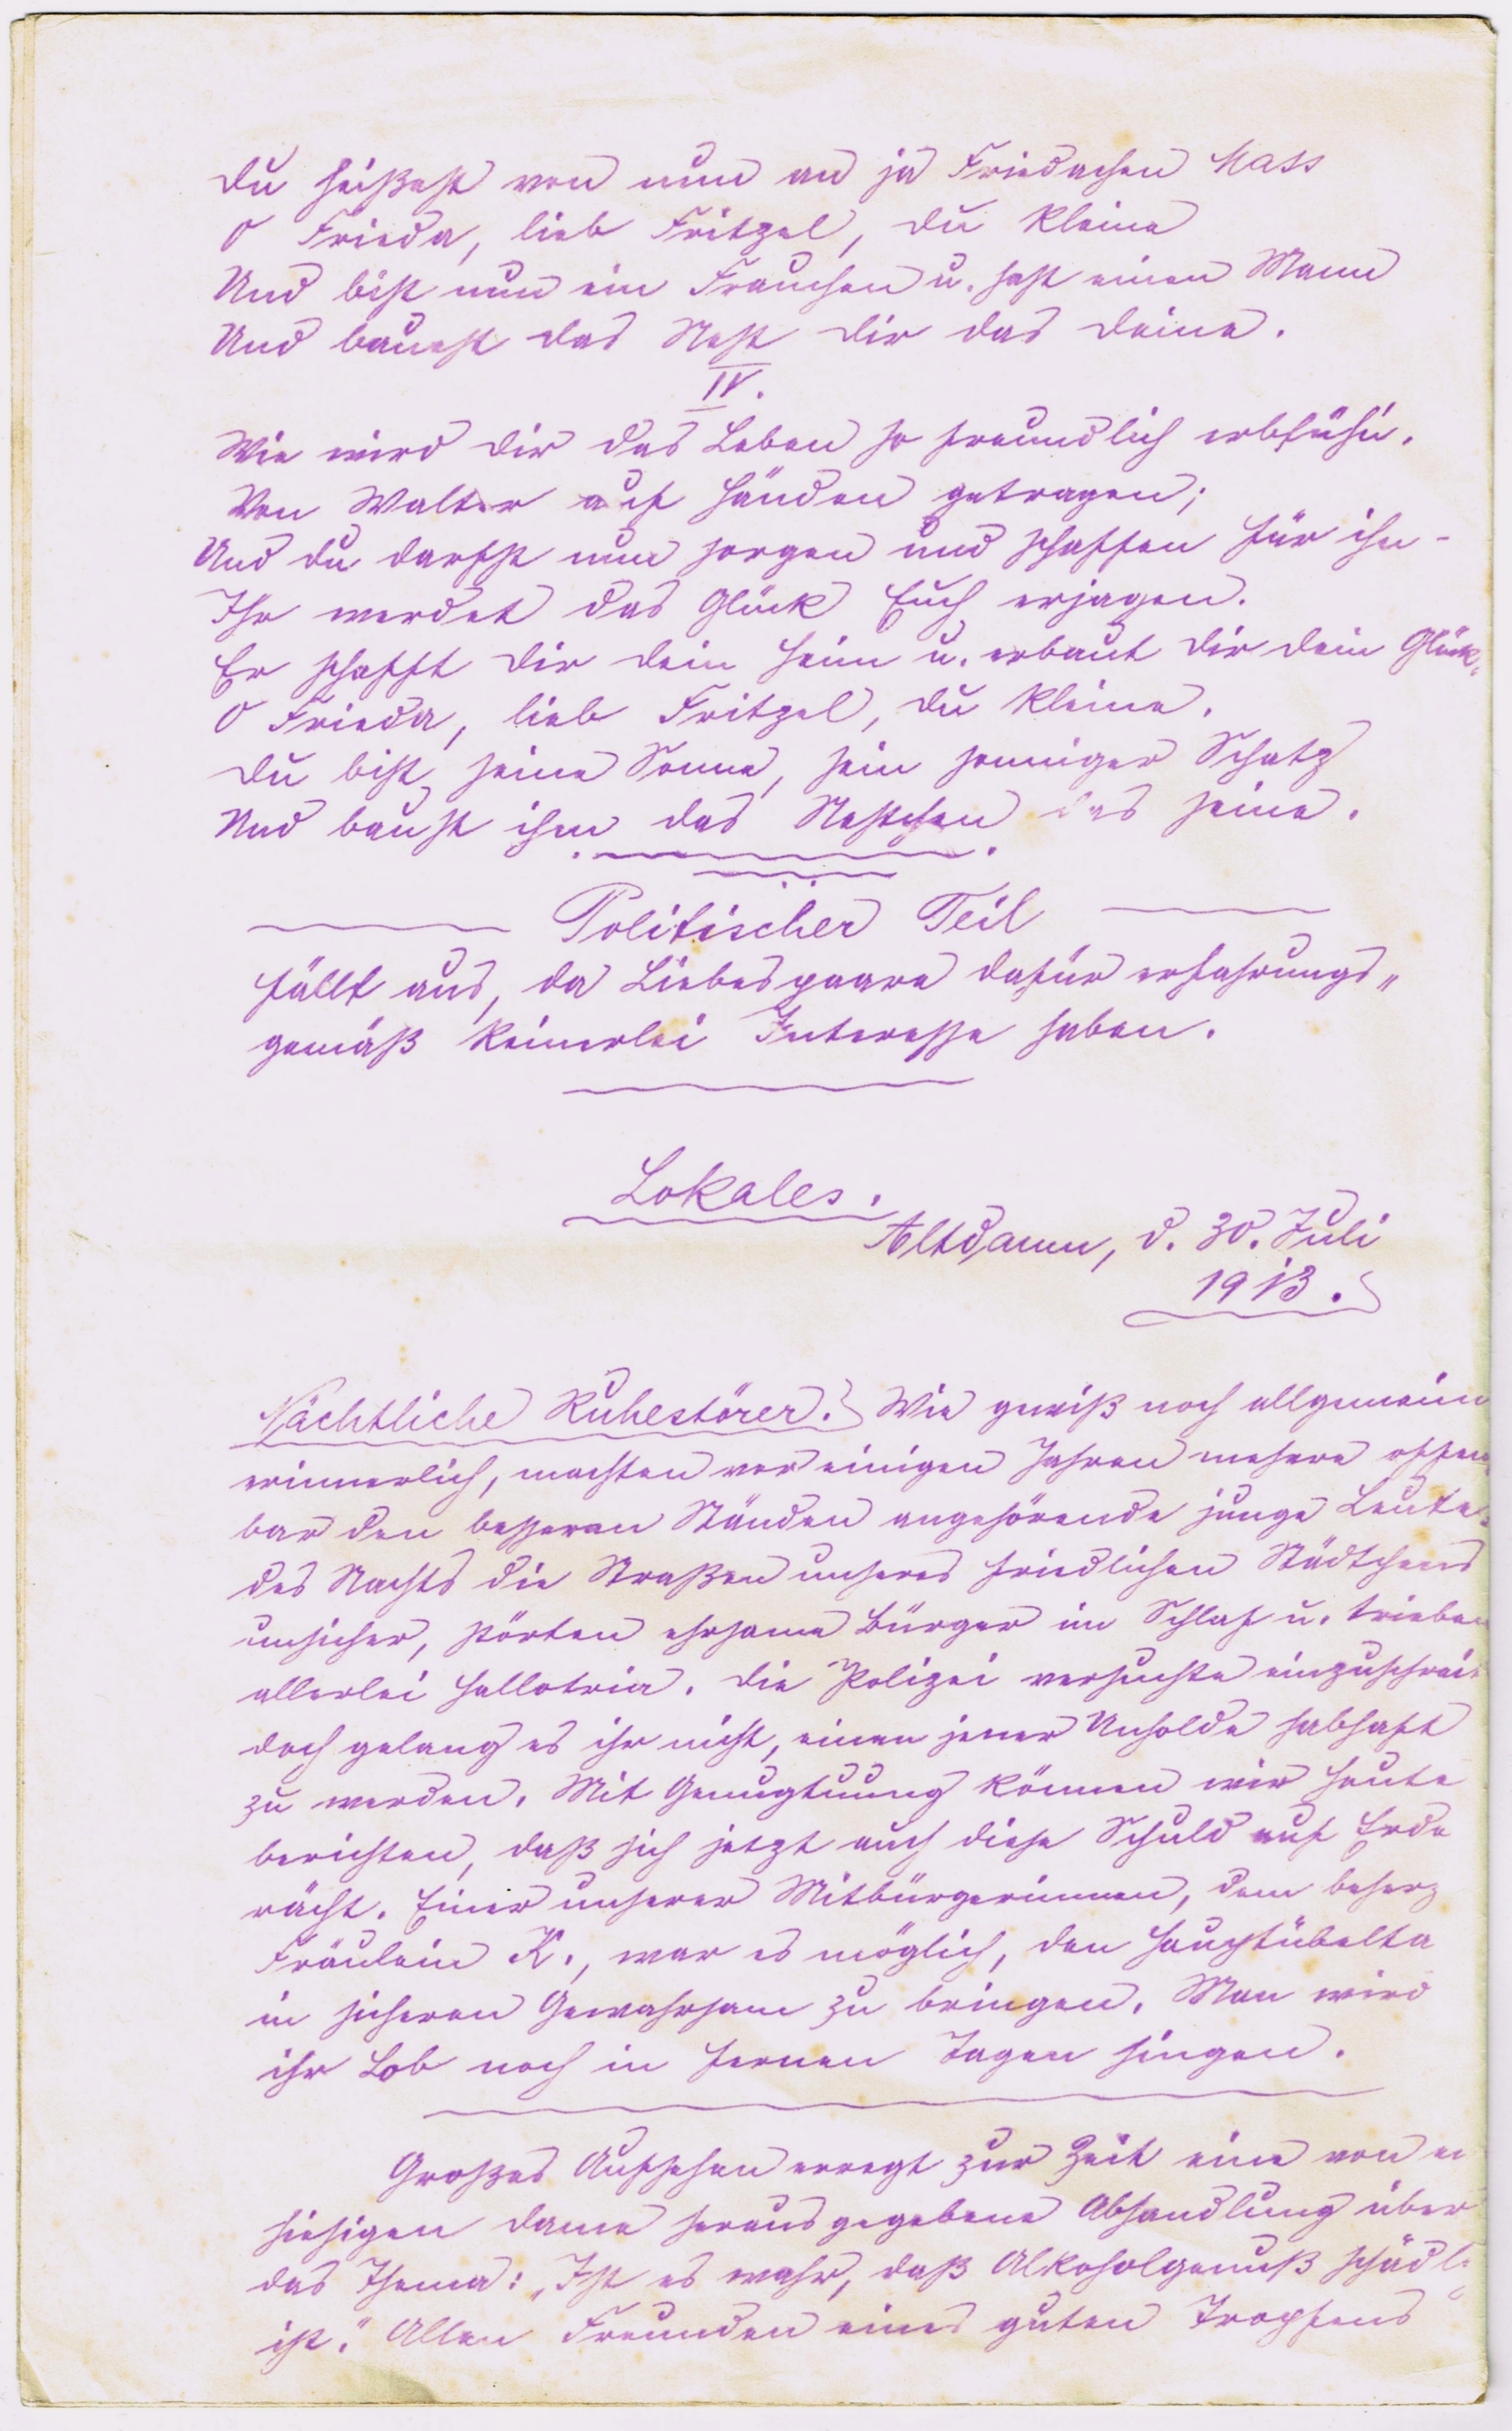 Du heißest von nun an ja Friedachen Mass
O Frieda, lieb Fritzel, du kleine
Und bist nun ein Frauchen u. hast einen Mann
Und bauest das Nest dir das deine.
IV.
Wie wird dir das Leben so freundlich erblühn.
Von Walter auf Händen getragen;
Und du darfst nun sorgen und schaffen für ihn -
Ihr werdet das Glück Euch erjagen.
Er schafft dir dein Heim u. erbaut dir dein Glück,
O Frieda, lieb Fritzel, du kleine.
Du bist seine Sonne, sein sonniger Schatz
Und baust ihm das Nestchen das seine.
Politischer Teil
fällt aus, da Liebespaare dafür erfahrungs„
gemäß keinerlei Interesse haben.
Lokales.
Altdamm, d. 30. Juli
1913.
Nächtliche Ruhestörer. Wie gewiß noch allgemein
erinnerlich, machten vor einigen Jahren mehere offen„
bar den besseren Ständen angehörende junge Leute
des Nachts die Straßen unseres friedlichen Städtchens
unsicher, störten ehrsame Bürger im Schlaf u. trieben
allerlei Hallotria. Die Polizei versuchte einzuschrei
doch gelang es ihr nicht, einen jener Unholde habhaft
zu werden. Mit Genugtuung können wir heute
berichten, daß sich jetzt auch diese Schuld auf Erde
rächt. Einer unserer Mitbürgerinnen, dem beherz
Fräulein K., war es möglich, den Hauptübelta
in sicheren Gewahrsam zu bringen. Man wird
ihr Lob noch in fernen Tagen singen.
Großes Aufsehen erregt zur Zeit eine von ei
hiesigen Dame herausgegebene Abhandlung über
das Thema: „Ist es wahr, daß Alkoholgenuß schädl
ist." Allen Freunden eines guten Tropfens